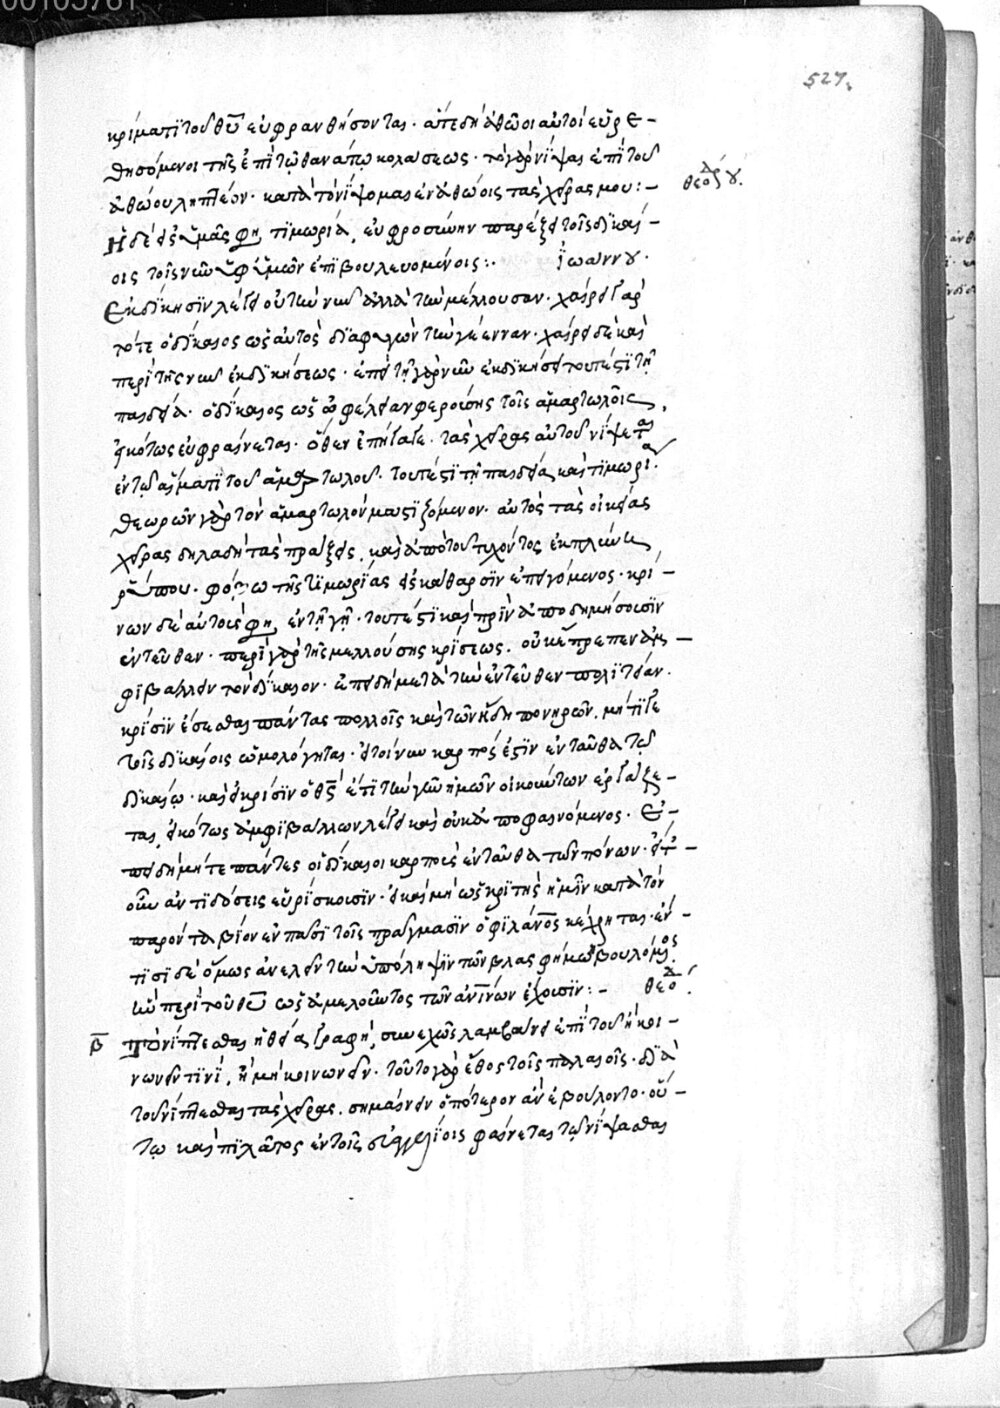 00105761
527.
κρίματι τοῦ θῦ εὐφρανθήσονται· ἅτε δὴ ἀθῶοι αὐτοὶ εὑρε –
θησόμενοι τῆς ἐπὶ τῷ θανάτῳ κολάσεως· τὸ γὰρ νίψας ἐπὶ τοῦ
ἀθώου ληπτέον· κατὰ τὸ νίψομαι ἐν ἀθώοις τὰς χεῖρας μου: –
θεοδρ
Ἡ δὲ εἰς ὑμᾶς φη τιμωρία, εὐφροσύνην παρέξει τοῖς δικαί –
οις τοῖς νῦν ὑφ' ὑμῶν ἐπιβουλευομένοις:· Ἰωάννου·
Ἐκδίκησιν λέγει οὐ τὴν νῦν ἀλλὰ τὴν μέλλουσαν· χαίρει γὰρ
τότε ὁ δίκαιος ὡς αὐτὸς διαφυγὼν τὴν γέενναν· χαίρει δὲ καὶ
περὶ τῆς νῦν ἐκδικήσεως· ἐπεὶ τῇ γὰρ νῦν ἐκδικήσει τουτέστι τῇ
παιδείᾳ· ὁ δίκαιος ὡς ὠφέλειαν φερούσης τοῖς ἁμαρτωλοῖς,
εἰκότως εὐφραίνεται· ὅθεν ἐπήγαγε· τὰς χεῖρας αὐτοῦ νίψεται
ἐν τῷ αἵματι τοῦ ἁμαρτωλοῦ· τουτέστι τῇ παιδείᾳ καὶ τιμωρίᾳ·
θεωρῶν γὰρ τὸν ἁμαρτωλὸν μαστιζόμενον· αὐτὸς τὰς οἰκείας
χεῖρας δηλαδὴ τὰς πράξεις, καὶ ἀπὸ τοῦ τυχόντος ἐκπλύνει
ῥύπου· φόβῳ τῆς τιμωρίας εἰς κάθαρσιν ἐπειγόμενος· κρί –
νων δὲ αὐτούς φη, ἐν τῇ γῇ· τουτέστι καὶ πρὶν ἀποδημήσουσιν
ἐντεῦθεν· περὶ γὰρ τῆς μελλούσης κρίσεως. οὐκ ἔπρεπεν ἀμ –
φιβάλλειν τὸν δίκαιον· ἐπειδὴ μετὰ τὴν ἐντεῦθεν πολιτείαν.
κρίσιν ἔσεσθαι πάντας πολλοῖς καὶ τῶν ἤδη πονηρῶν. μήτιγε
τοῖς δικαίοις ὡμολόγηται· εἰ τοίνυν καρπός ἐστιν ἐνταῦθα τῷ
δικαίῳ· καὶ εἰ κρίσιν ὁ θς ἐπὶ τὴν γῆν ἡμῶν οἰκούντων ἐργάζε –
ται, εἰκότως ἀμφιβάλλων λέγει καὶ οὐκ ἀποφαινόμενος· Ἐ –
πειδὴ μήτε πάντες οἱ δίκαιοι καρποὺς ἐνταῦθα τῶν πόνων·
οὖν ἀντιδόσεις εὑρίσκουσιν· εἰ καὶ μὴ ὡς κριτὴς ἡμῖν κατὰ τὸν
παρόντα βίον ἐν πᾶσι τοῖς πράγμασιν ὁ φιλάνος κέχρηται· ἔν –
τισι δὲ ὅμως ἀνελεῖν τὴν ὑπόληψιν τῶν βλασφημεῖν βουλομένος
ἣν περὶ τοῦ θεοῦ ὡς ἀμελοῦντος τῶν ἀνίνων ἔχουσιν: – θεοδ
β Τὸ νίπτεσθαι ἡ θεία γραφή, συνεχῶς λαμβάνει ἐπὶ τοῦ ἢ κοι –
νωνεῖν τινὶ, ἢ μὴ κοινωνεῖν· τοῦτο γὰρ ἔθος τοῖς παλαιοῖς· διὰ
τοῦ νίπτεσθαι τὰς χεῖρας. σημαίνειν ὁπότερον ἂν ἐβούλοντο· οὕ –
τω καὶ πιλᾶτος ἐν τοῖς εὐαγγελίοις φαίνεται τῷ νίψασθαι